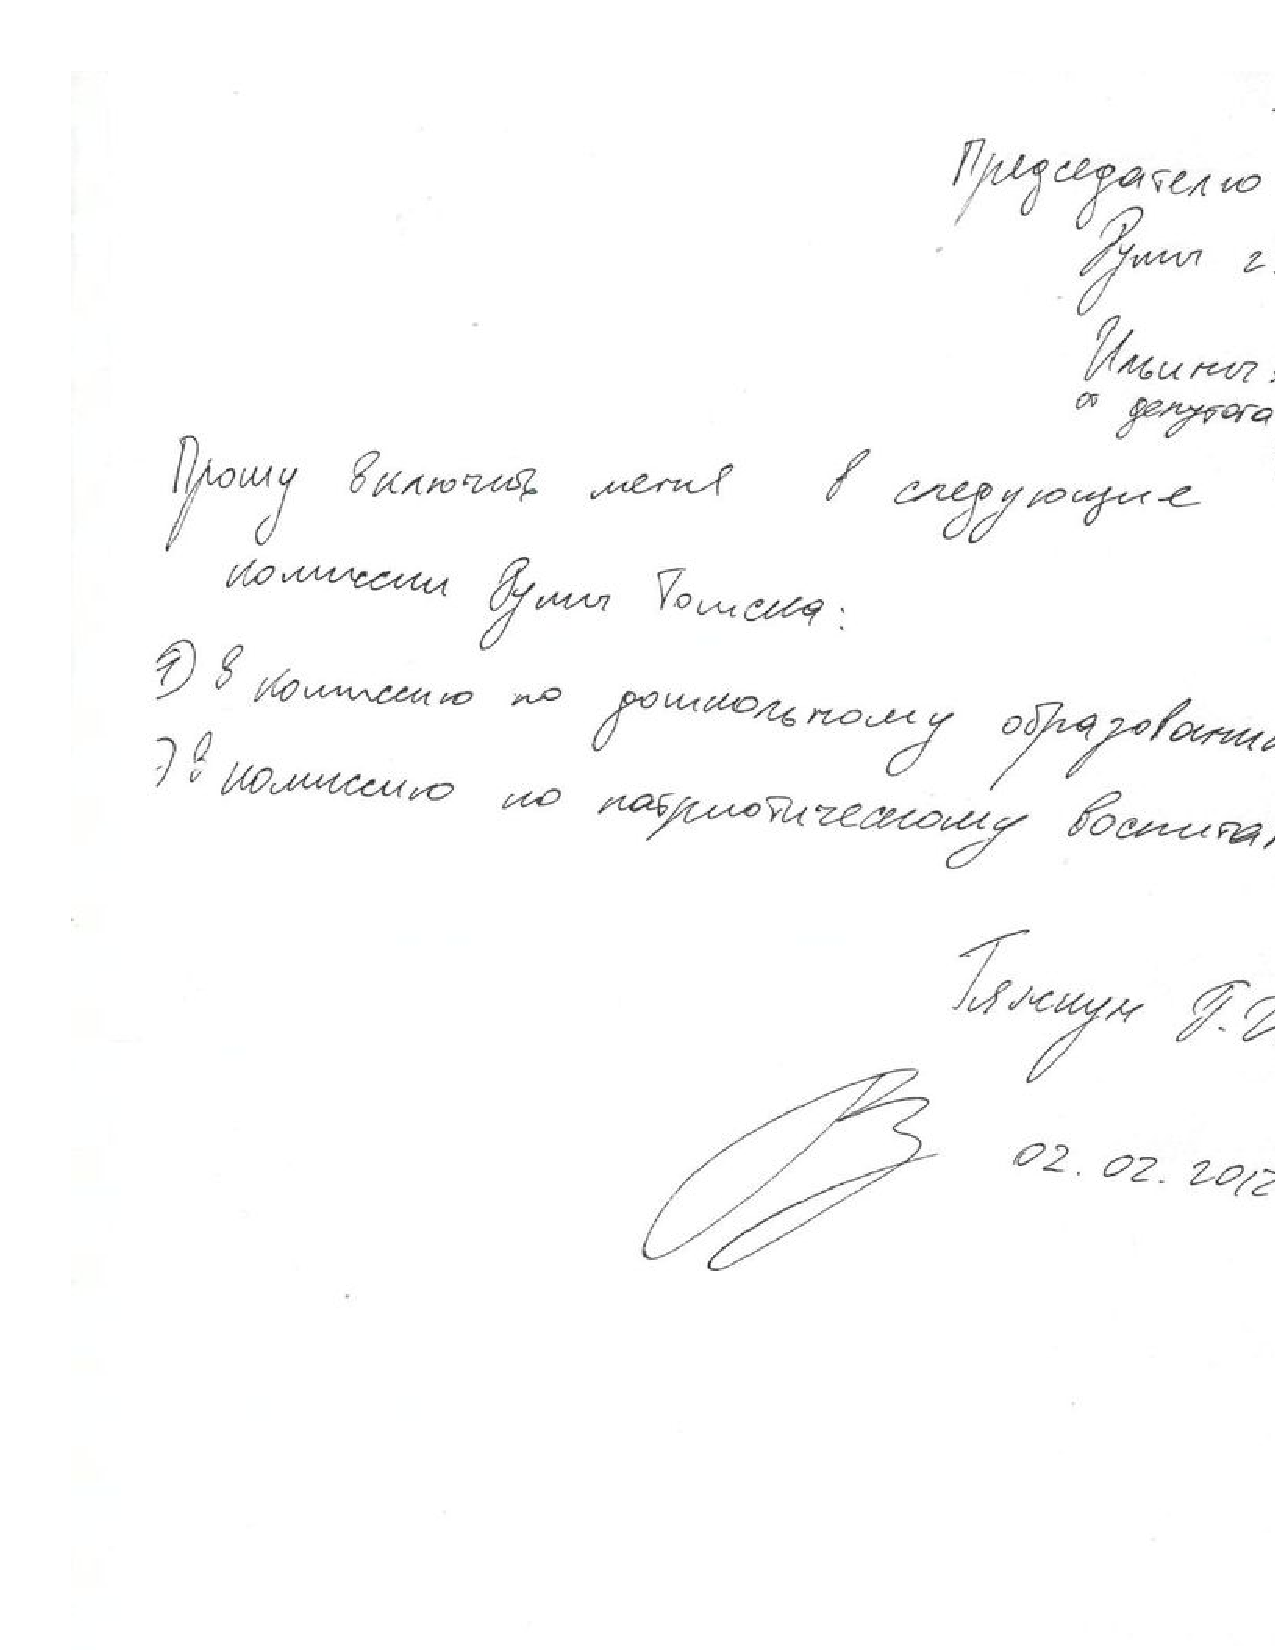 Председателю
Думы г.
Ильины
от депутата
Прошу включить меня в следующие
комиссии Думы Томска:
1) В комиссию по дошкольному образовани
-) в комиссию по патриотическому воспита
Тяжкун Г.
02.02.2012